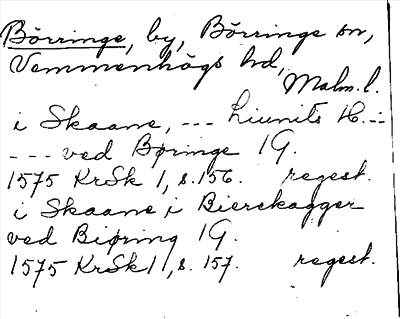 Börringe, by, Börringe sn,
Vemmenhögs hd,
Malm. l.
i Skaane, --- Liunits H. --
--- ved Børinge 1G.
1575 KrSk 1, s. 156. regest.
i Skaane i Bierskagger
ved Biøring 1G.
1575 KrSk 1, s. 157. regest.